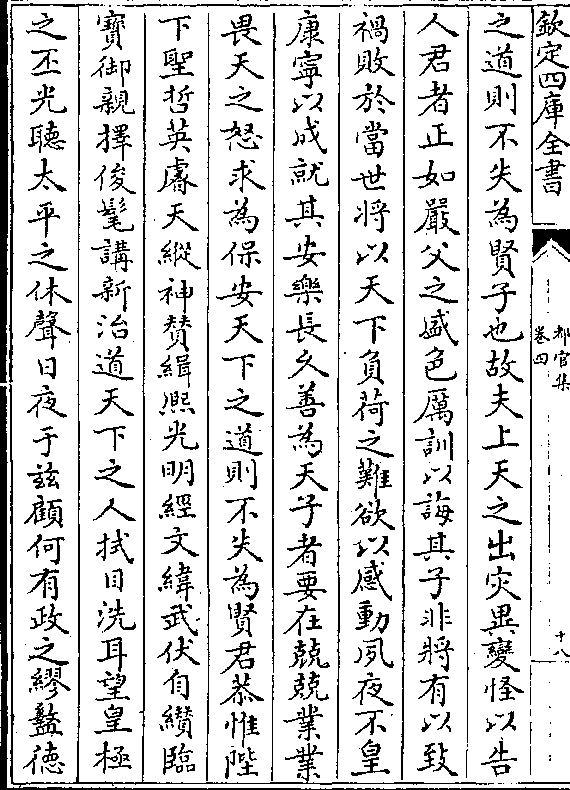 欽定四庫全書
都官集
卷四
十八
之道則不失為賢子也故夫上天之出灾異變怪以告
人君者正如嚴父之盛色厲訓以誨其子非將有以致
禍敗於當世將以天下負荷之難欲以感動夙夜不皇
康寧以成就其安樂長久善為天子者要在兢兢業業
畏天之怒求為保安天下之道則不失為賢君恭惟陛
下聖哲英膚天縱神贊緝熈光明經文緯武伏自纘臨
寳御親擇俊髦講新治道天下之人拭目洗耳望皇極
之丕光聽太平之休聲日夜于兹顧何有政之繆盭德